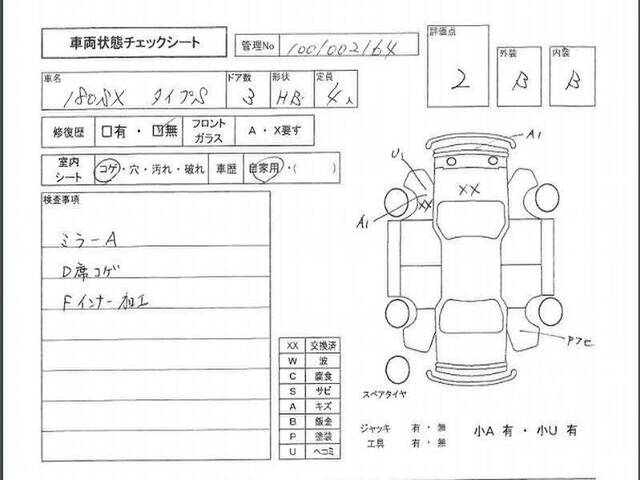 車両状態チェックシート
管理No 1001002164
評価点 2
外装 B
内装 B
車名 180SX タイプS
ドア数 3
形状 HB
定員 4人
修復歴 □有・☑無
フロントガラス A・X要す
室内シート コゲ・穴・汚れ・破れ
車歴 自家用・( )
検査事項
ミラーA
D席コゲ
Fインナー加工
A1
U1
XX
XX
A1
Pアセ
XX 交換済
W 波
C 腐食
S サビ
A キズ
B 鈑金
P 塗装
U ヘコミ
スペアタイヤ
ジャッキ 有・無
工具 有・無
小A 有・小U 有